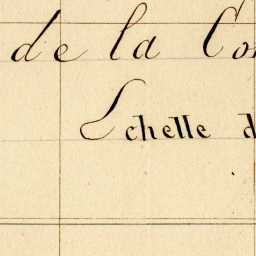 de la Co
Echelle d